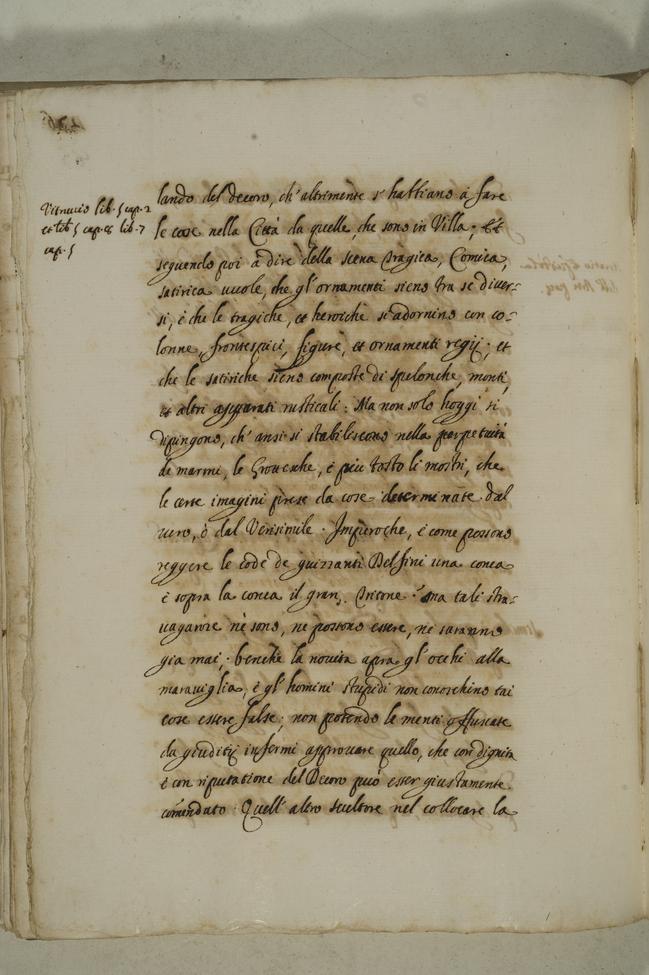 Vitruvio lib. 5 cap. 2
et lib 5 cap. 8 lib. 7
cap. 5
lando del decoro, ch' altrimente s' habbiano à fare
le cose nella Città da quelle, che sono in Villa; Et
seguendo poi à dire della scena Tragica, Comica,
satirica vuole, che gl' ornamenti sieno tra se diver-
si, è che le tragiche, et heroiche si adornino con co-
lonne, frontespici, figure, et ornamenti regij; et
che le satiriche sieno composte di spelonche, monti,
et altri apparati rusticali. Ma non solo hoggi si
dipingono, ch' anzi si stabiliscono nella perpetuità
de marmi, le Grottesche, è più tosto li mostri, che
le certe imagini prese da cose determinate dal
vero, ò dal Verisimile. Imperoche, è come possono
reggere le code de guizzanti Delfini una conca
è sopra la conca il gran Tritone? ma tali stra-
vaganze nè sono, ne possono essere, ne saranno
gia mai; benche la novita apra gl' occhi alla
maraviglia, è gl' homini stupidi non conoschino tai
cose essere false; non potendo le menti offuscate
da giuditij infermi approuare quello, che con dignita
è con riputatione del Decoro può esser giustamente
comandato. Quell' altro scultore nel collocare la